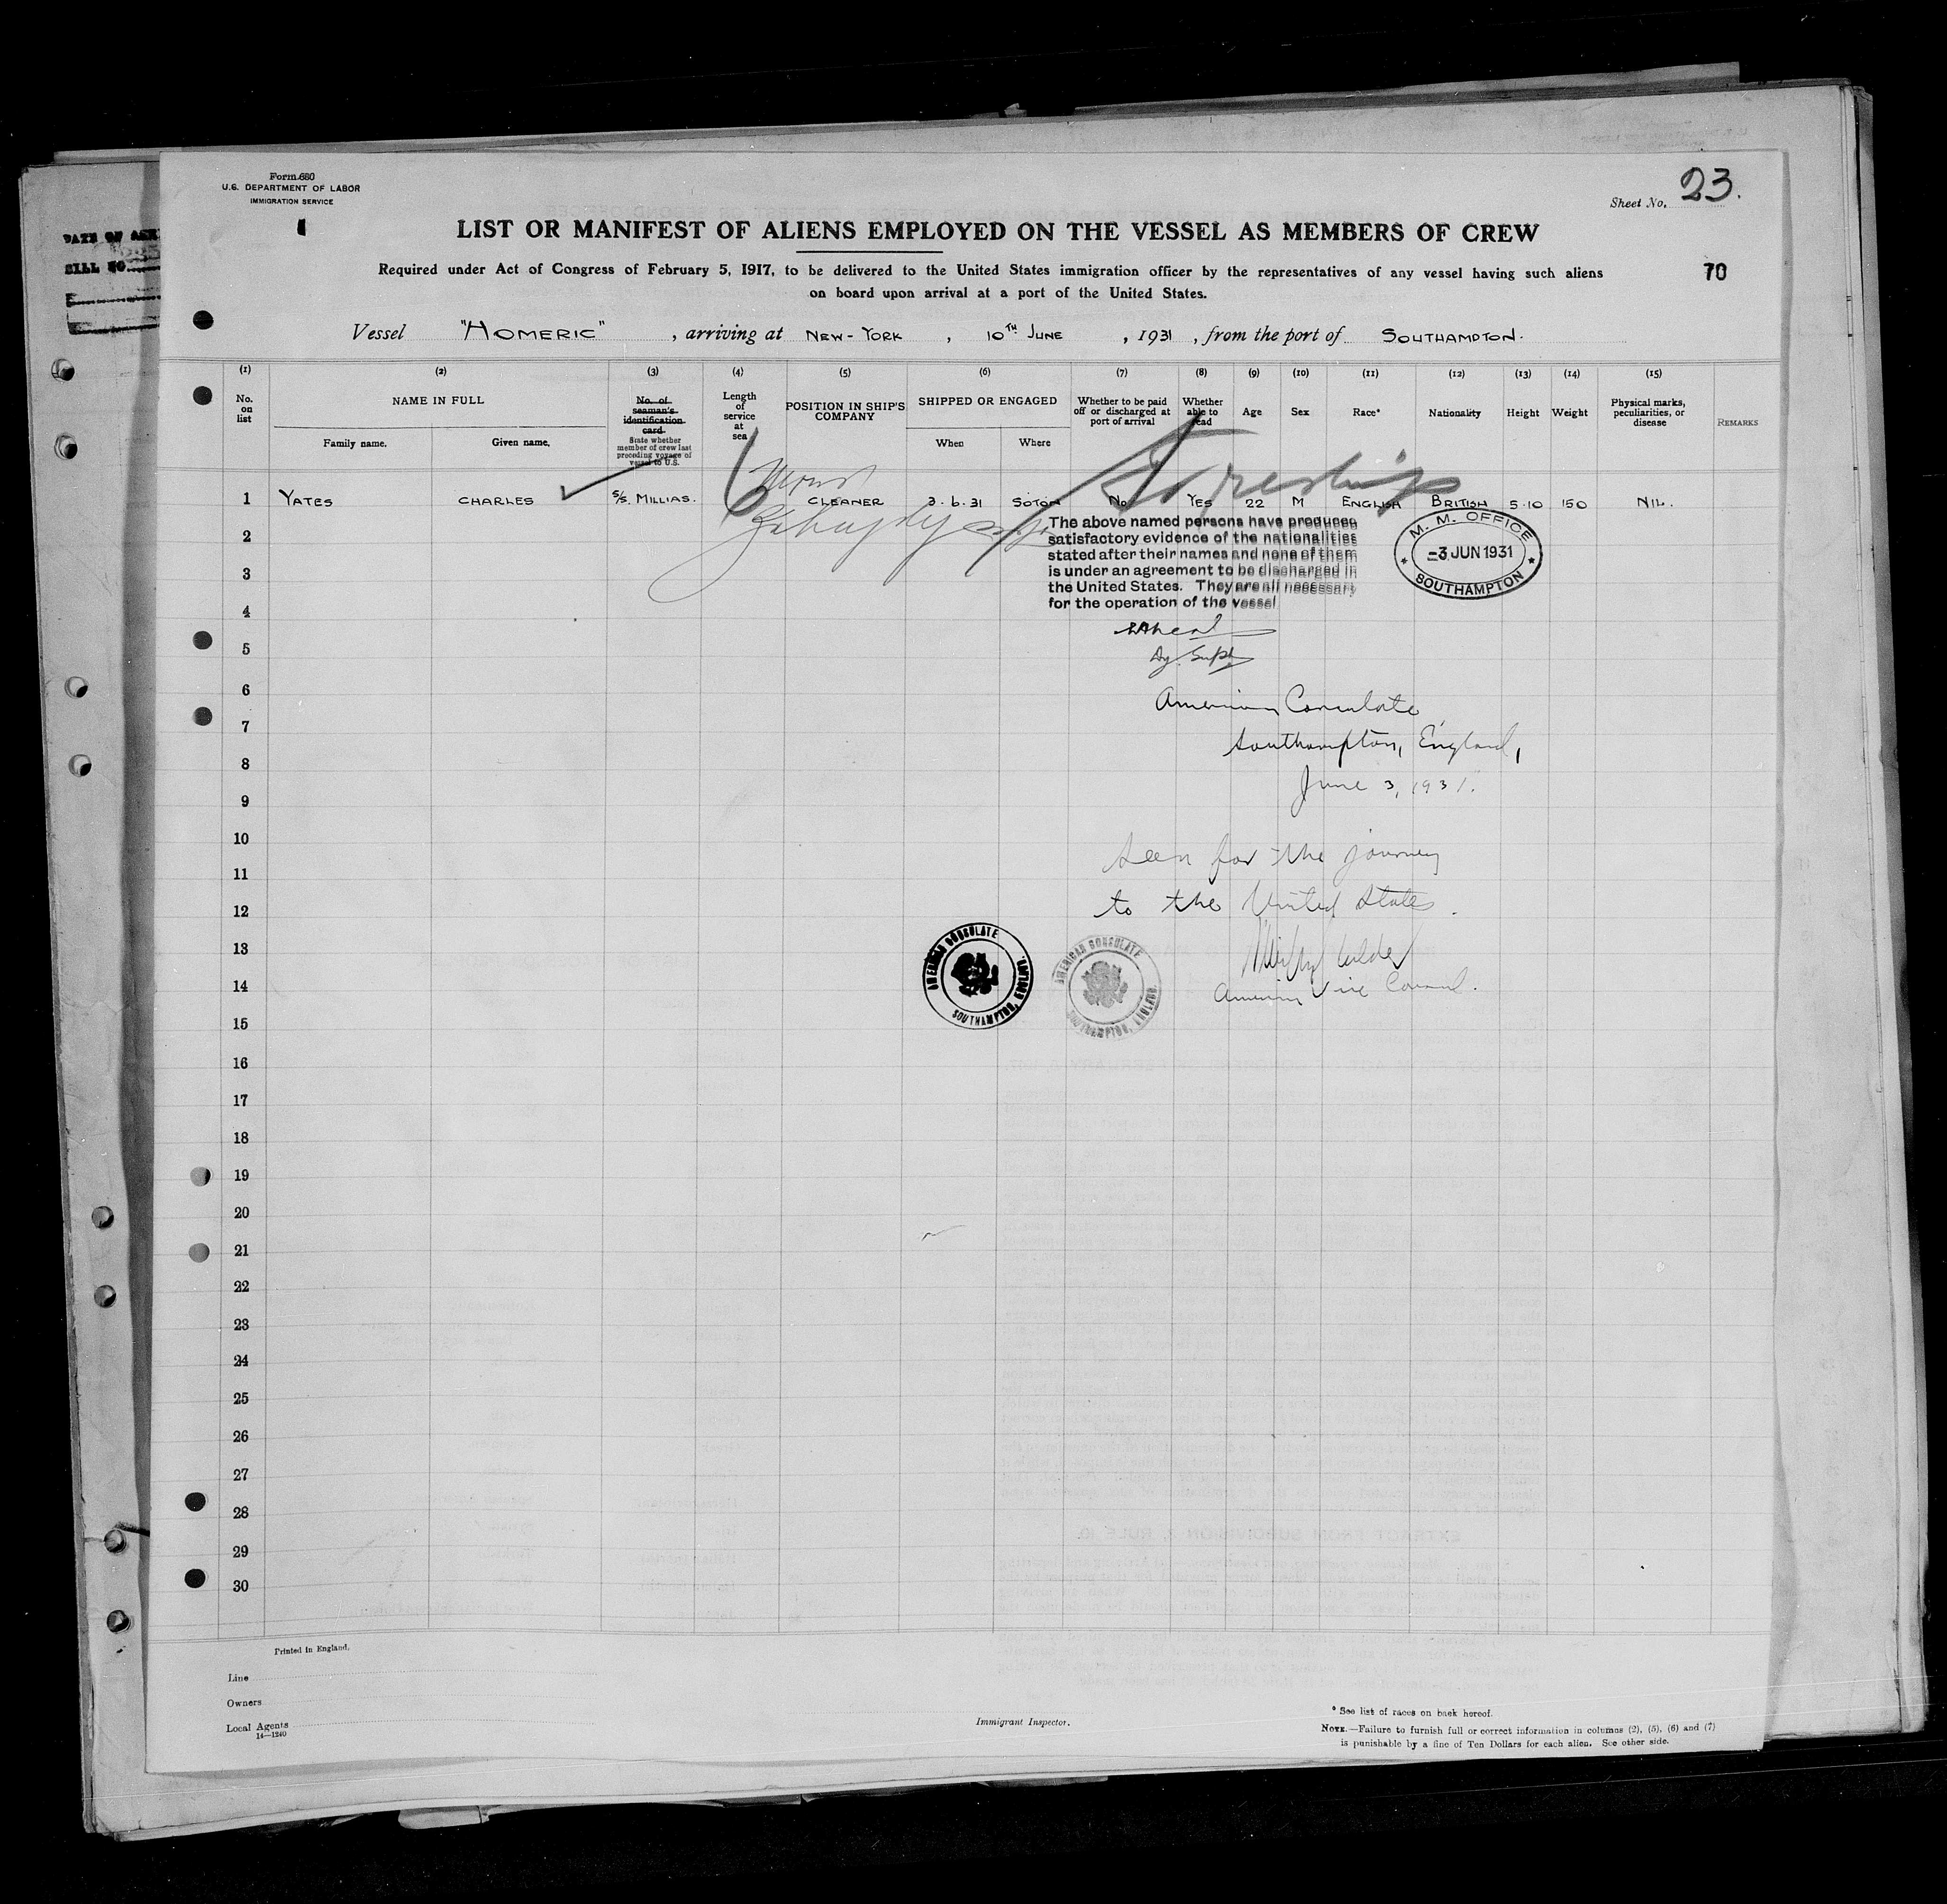 Form 680
U.S. DEPARTMENT OF LABOR
IMMIGRATION SERVICE
Sheet No. 23.
LIST OR MANIFEST OF ALIENS EMPLOYED ON THE VESSEL AS MEMBERS OF CREW
Required under Act of Congress of February 5, 1917, to be delivered to the United States immigration officer by the representatives of any vessel having such aliens
on board upon arrival at a port of the United States.
70
Vessel "HOMERIC", arriving at NEW-YORK, 10TH JUNE, 1931, from the port of SOUTHAMPTON.
(1) (2) (3) (4) (5) (6) (7) (8) (9) (10) (11) (12) (13) (14) (15)
No. on list
NAME IN FULL
Family name. Given name.
No. of seaman's identification card.
State whether member of crew last preceding voyage of vessel to U.S.
Length of service at sea
POSITION IN SHIP'S COMPANY
SHIPPED OR ENGAGED
When Where
Whether to be paid off or discharged at port of arrival
Whether able to read
Age
Sex
Race*
Nationality
Height
Weight
Physical marks, peculiarities, or disease
REMARKS
1 YATES CHARLES S/S. MILLIAS. CLEANER 3.6.31 SOTON No YES 22 M ENGLISH BRITISH 5.10 150 NIL.
The above named persons have produced
satisfactory evidence of the nationalities
stated after their names and none of them
is under an agreement to be discharged in
the United States. They are all necessary
for the operation of the vessel
M. M. OFFICE
-3 JUN 1931
SOUTHAMPTON
Dy. Supt
American Consulate
Southampton, England,
June 3, 1931.
Seen for the journey
to the United States.
American Vice Consul.
AMERICAN CONSULATE
SOUTHAMPTON, ENGLAND.
AMERICAN CONSULATE
SOUTHAMPTON, ENGLAND.
2
3
4
5
6
7
8
9
10
11
12
13
14
15
16
17
18
19
20
21
22
23
24
25
26
27
28
29
30
Printed in England.
Line
Owners
Local Agents
14—1240
Immigrant Inspector.
* See list of races on back hereof.
NOTE.—Failure to furnish full or correct information in columns (2), (5), (6) and (7)
is punishable by a fine of Ten Dollars for each alien. See other side.